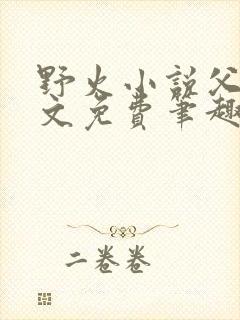 野火小说父
文免费笔趣
二卷卷